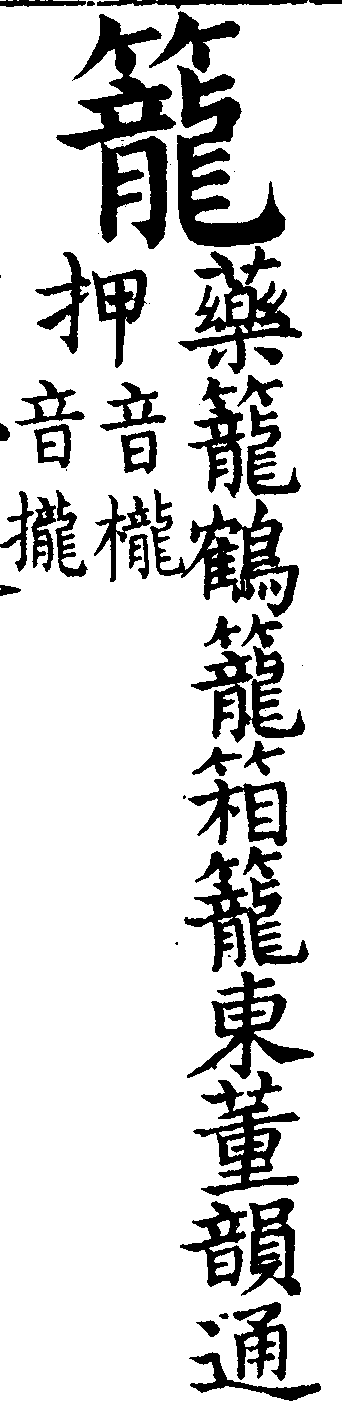 籠
藥籠鶴籠箱籠東董韻通
押
音櫳
音攏